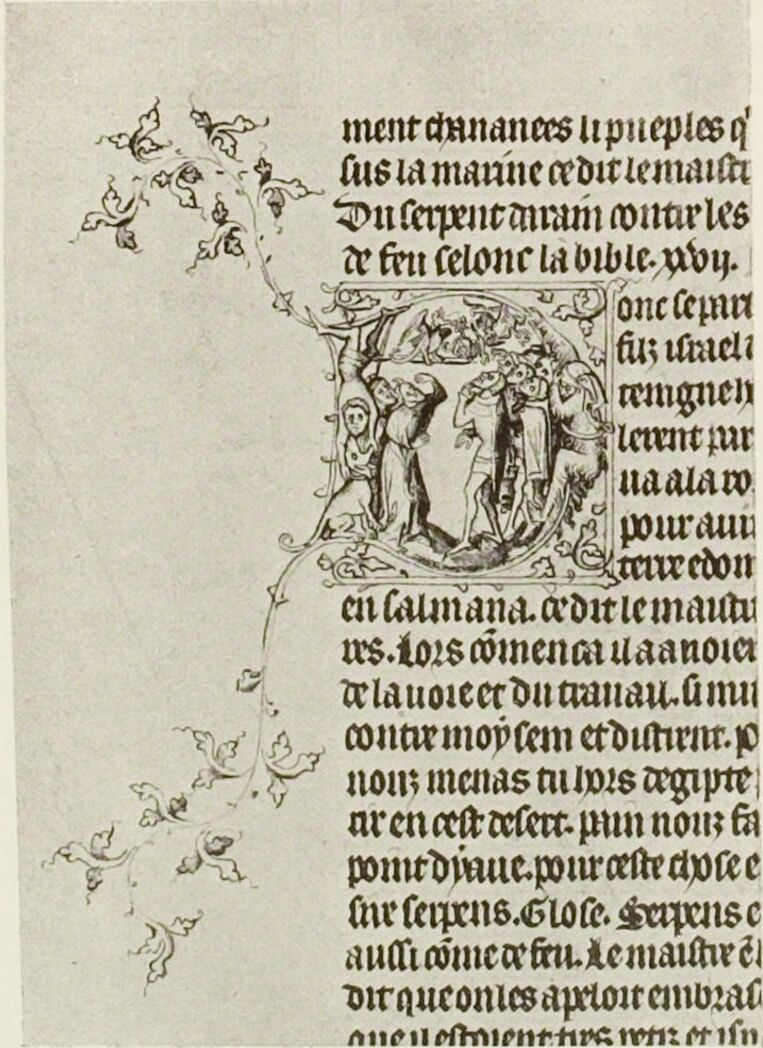 ment chananees li pueples q'
sus la marine ce dit le maistr
Du serpent darain contre les
de feu selonc la bible. xxvij.
onc se part
filz israel
lerent par
ua a la ro
pour aui
terre edom
en salmana. ce dit le maistr
res. Lors cōmenca il a anoier
de la uoie et du trauail. si mu
contre moysem et distrent. p
nouz menas tu hors degipte
rir en cest desert. pain nouz fa
point dyaue. pour ceste chose e
sire serpens. Glose. Serpens e
aussi cōme de feu. Le maistre
dit que on les apeloit embras